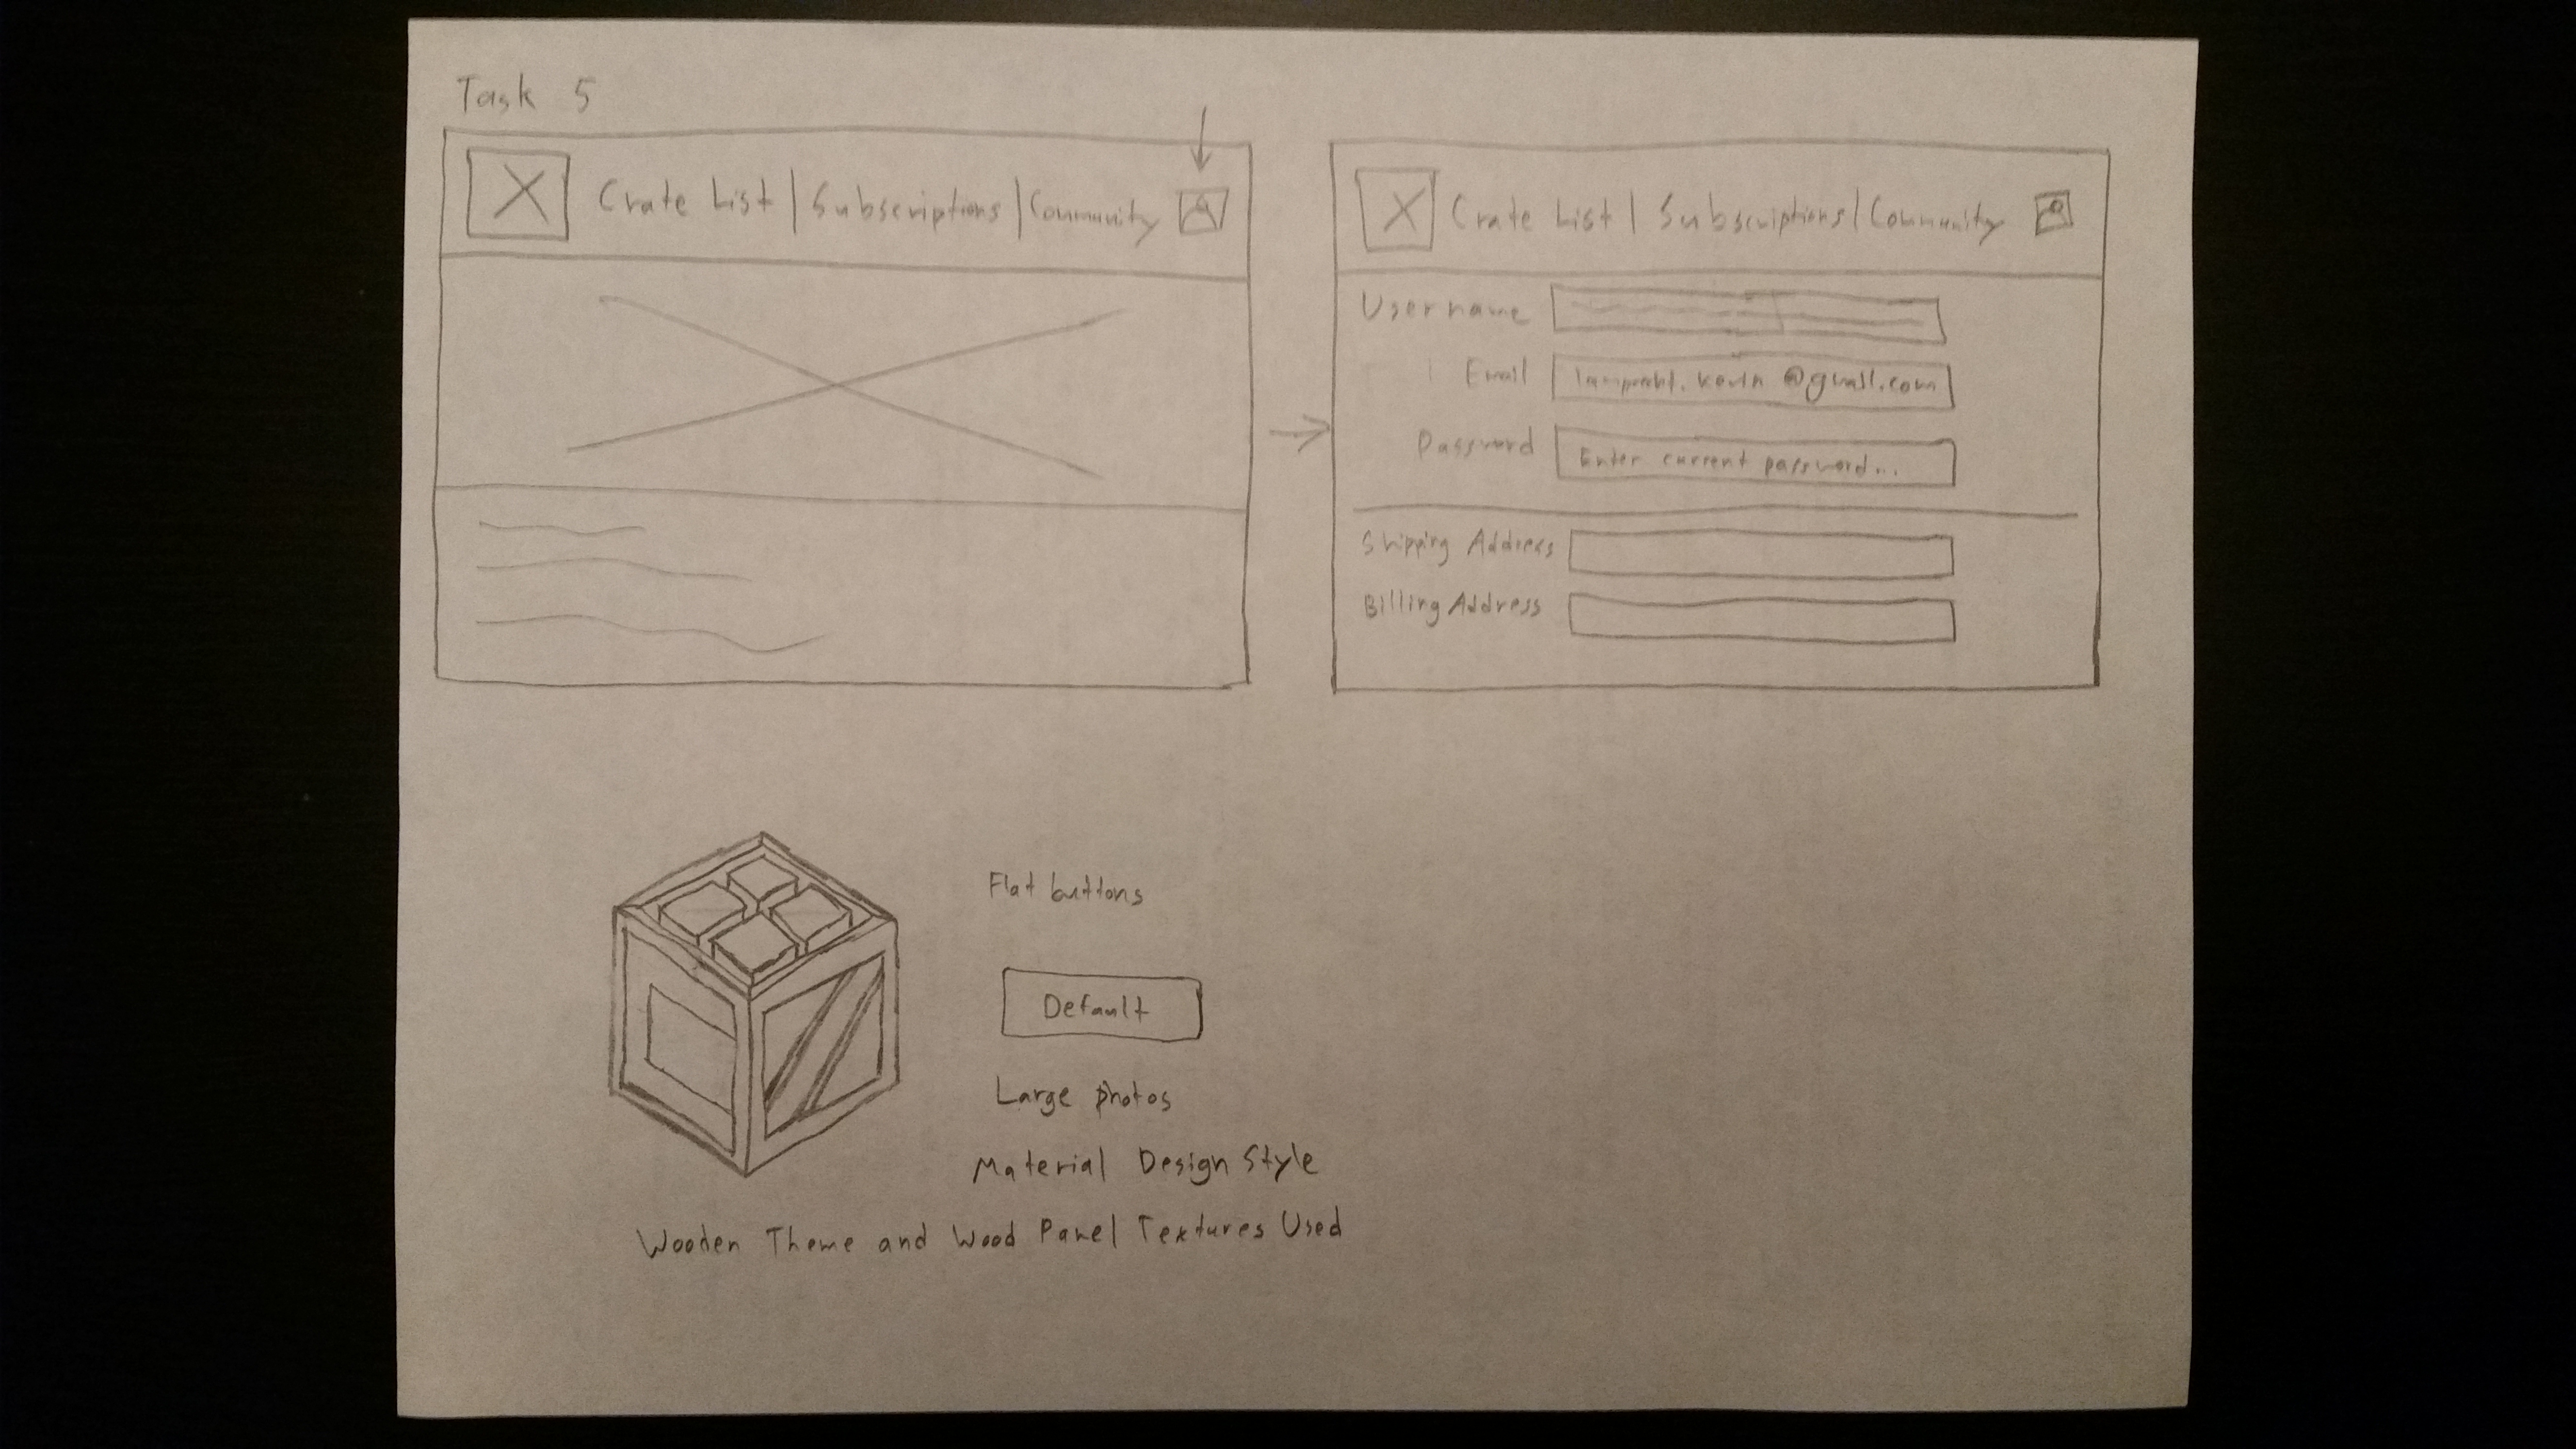 Task 5
Crate List | Subscriptions | Community
Crate List | Subscriptions | Community
Username
Email lamprecht.kevin@gmail.com
Password Enter current password...
Shipping Address
Billing Address
Flat buttons
Default
Large photos
Material Design Style
Wooden Theme and Wood Panel Textures Used